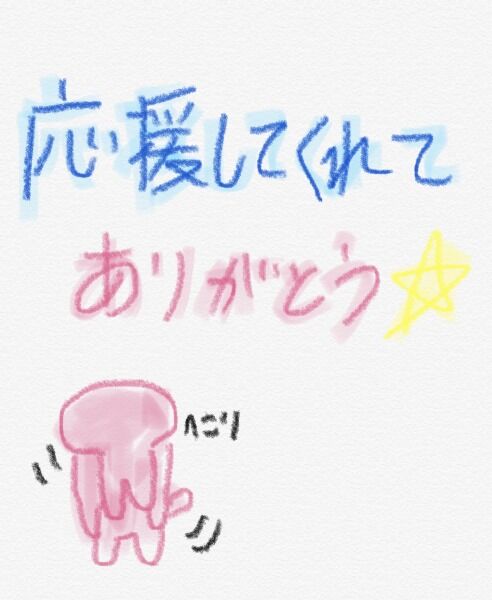 応援してくれて
ありがとう☆
ペこり